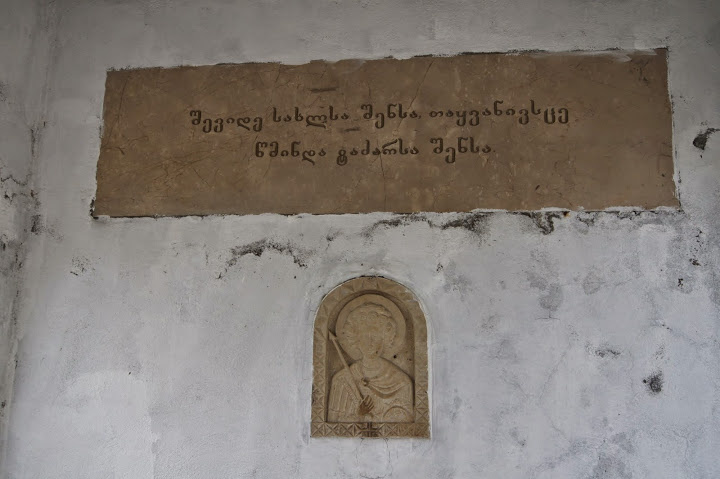 შევიდე სახლსა შენსა. თაყვანივსცე
წმინდა ტაძარსა შენსა.